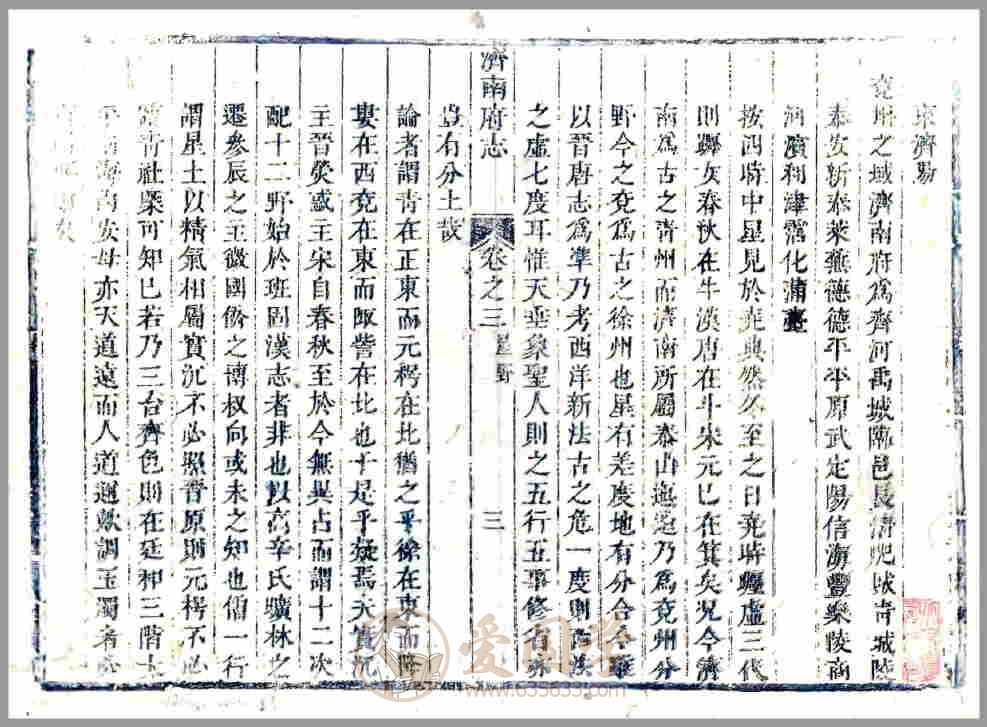 東濟勗
兗州之域濟南府爲齊河禹城臨邑長淸肥城靑城陵
泰安新泰萊蕪德德平平原武定陽信海豐樂陵商
河濱利津霑化蒲臺
按四時中星見於堯典然冬至之日堯時躔虛三代
則躔女春秋在牛漢唐在斗宋元巳在箕矣况今濟
南爲古之靑州而濟南所屬泰山迤邐乃爲兗州分
野今之兗爲古之徐州也星有差度地有分合今
以晉唐志爲準乃考西洋新法古之危一度則
之虛七度耳惟天垂象聖人則之五行五事修省亦
濟南府志 卷之三 星野 三
豈有分土哉
論者謂靑在正東而元枵在北猶之乎徐在東而降
婁在西兗在東而陬訾在北也于是乎疑焉夫實沉
主晉熒惑主宋自春秋至於今無異占而謂十二次
配十二野始於班固漢志者非也以高辛氏曠林之
遷參辰之主徵國僑之博叔向或未之知也僧一行
謂星土以精氣相屬實沉不必照晉原則元枵不必
靑社槩可知已若乃三台齊色則在廷神三階上
海內安毋亦天道遠而人道邇歟調玉燭者
爱国学
www.635633.com